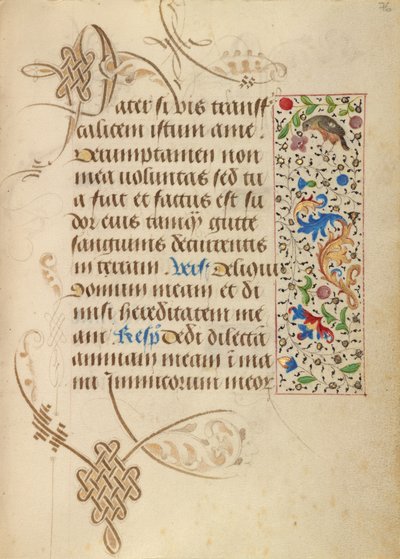 76
Pater si vis transf
calicem istum a me.
Verumptamen non
mea voluntas sed tu
a fiat et factus est su
dor eius tamqȝ gutte
sanguinis decurrentis
in terram Vers Deliqui
Domum meam et di
misi hereditatem me
am Resp̄ Dedi dilectā
animam meam ī ma
nu Inimicorum meoꝝ